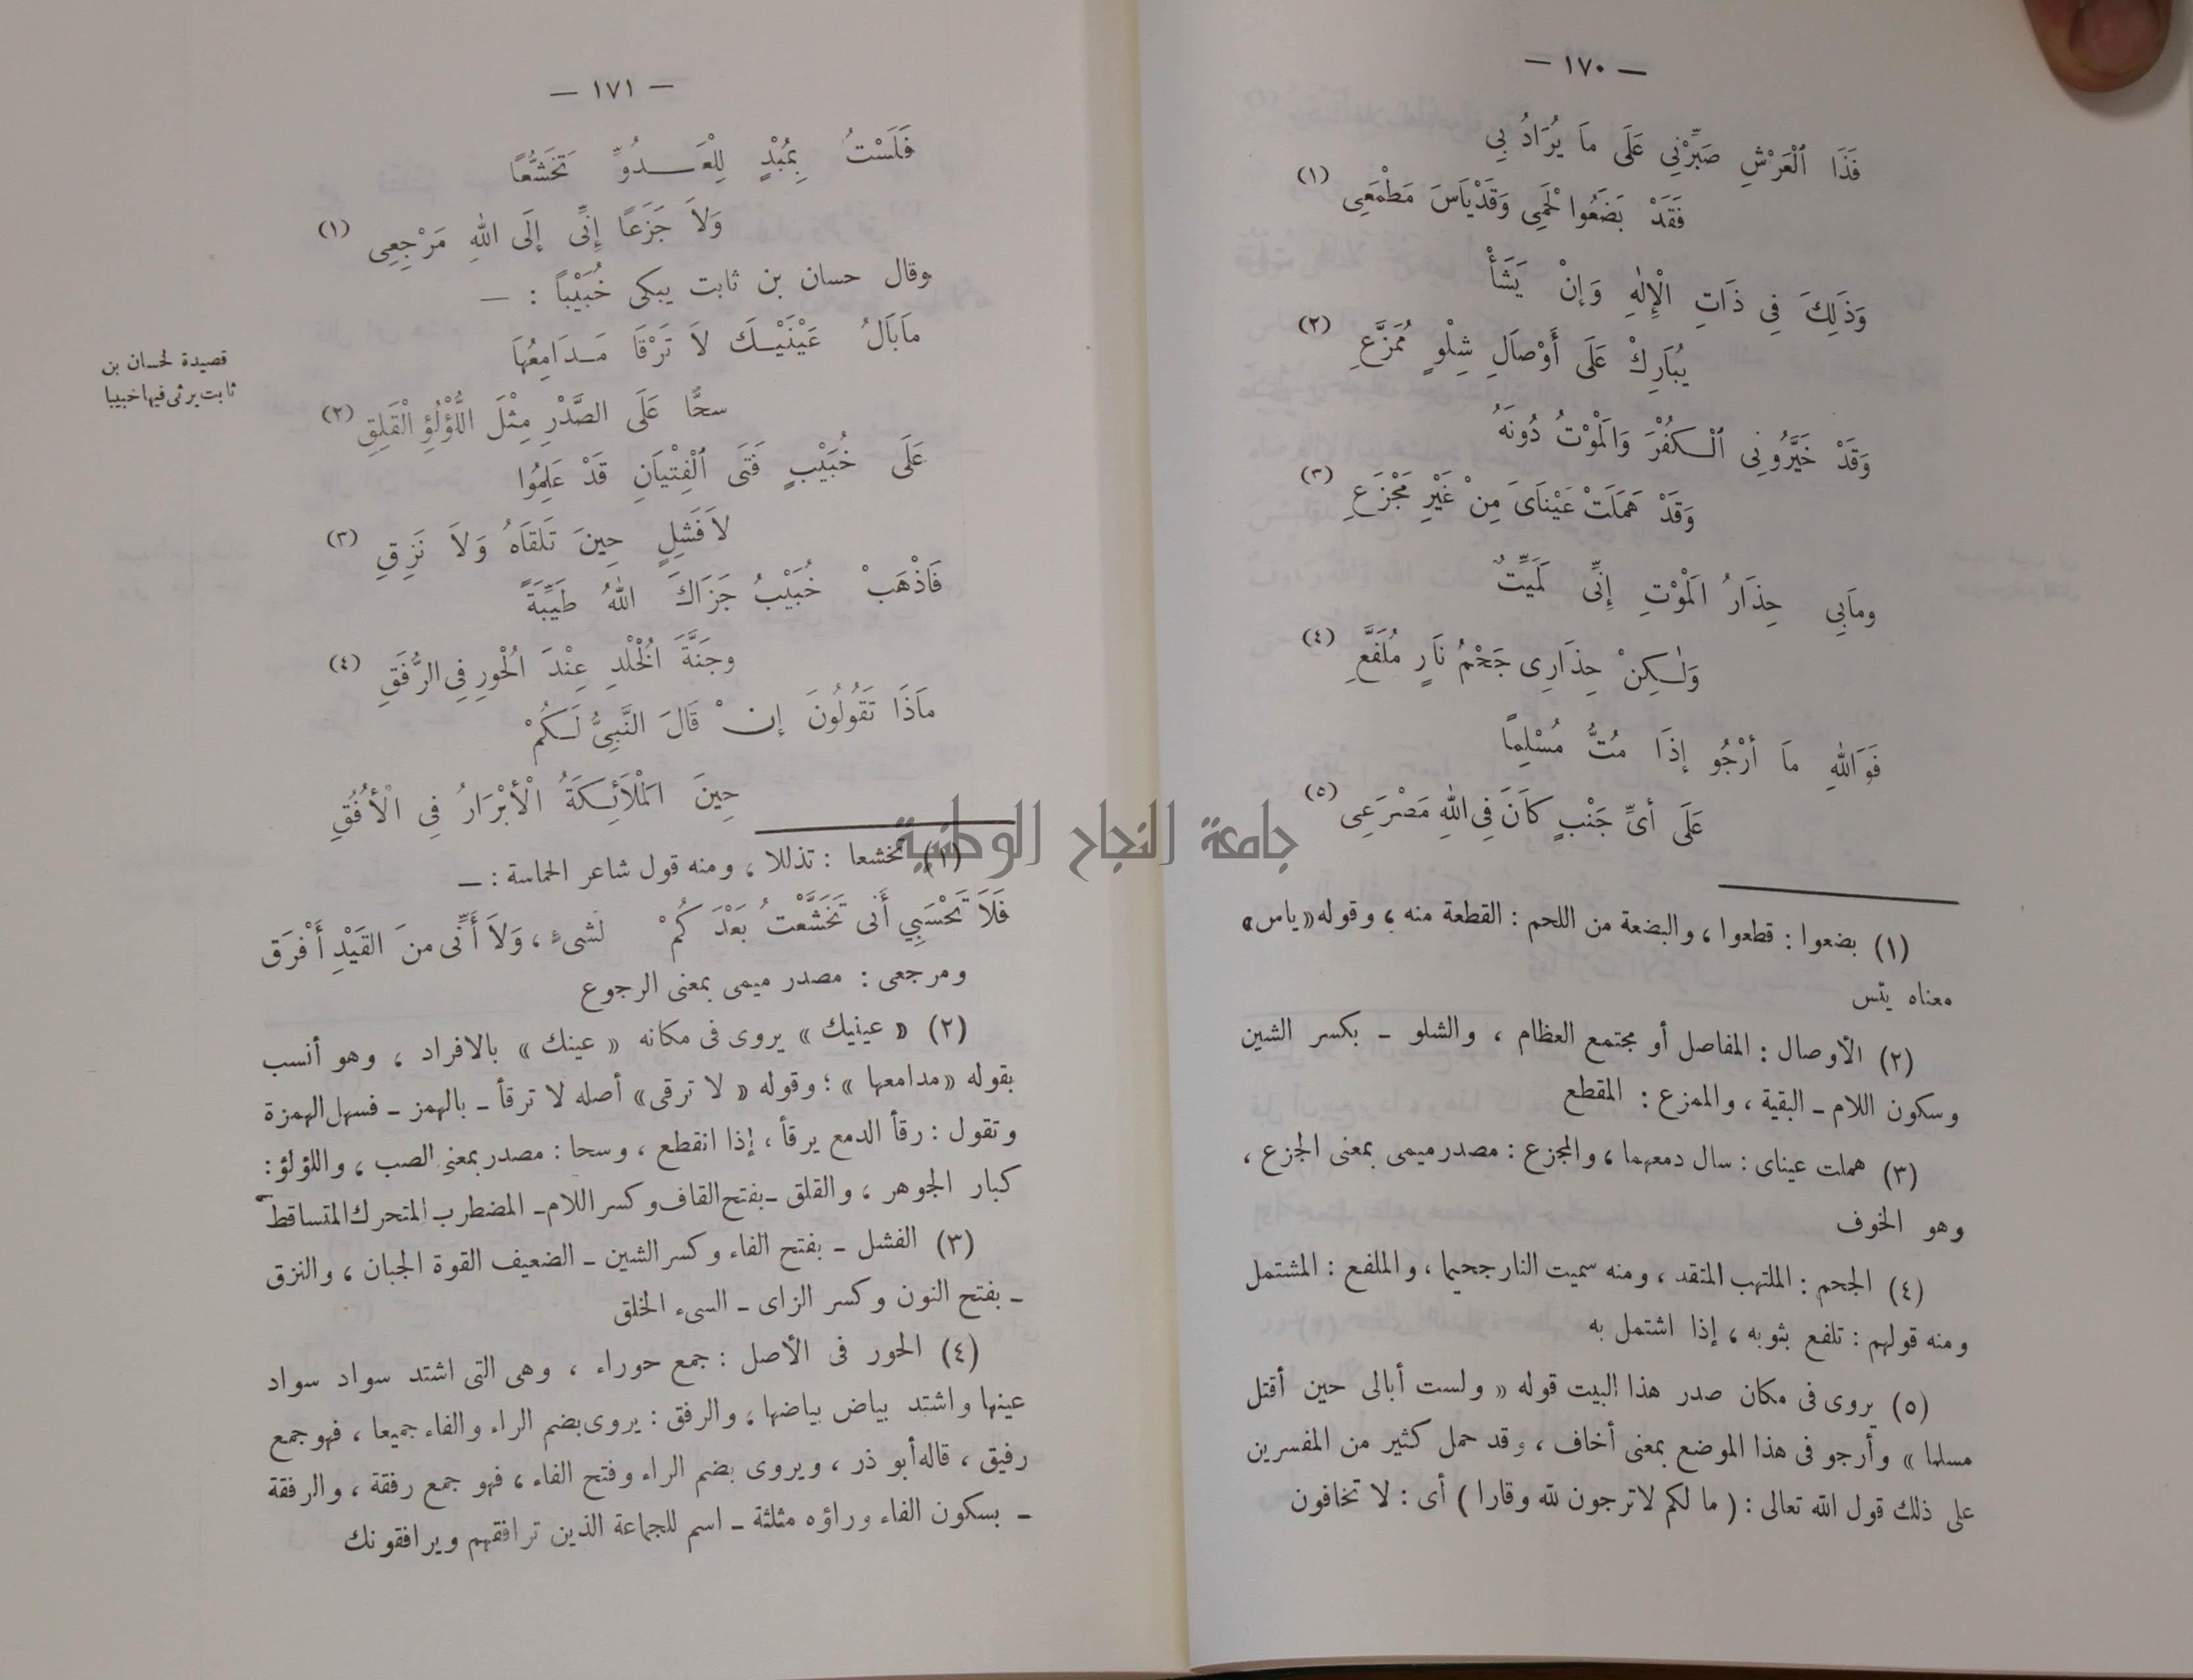 — ١٧٠ —
فَذَا ٱلْعَرْشِ صَبِّرْنِي عَلَى مَا يُرَادُ بِي
فَقَدْ بَضَعُوا لَحْمِي وَقَدْ يَاسَ مَطْمَعِي (١)
وَذَلِكَ فِي ذَاتِ الْإِلٰهِ وَإِنْ يَشَأْ
يُبَارِكْ عَلَى أَوْصَالِ شِلْوٍ مُمَزَّعِ (٢)
وَقَدْ خَيَّرُونِى ٱلْكُفْرَ وَالْمَوْتُ دُونَهُ
وَقَدْ هَمَلَتْ عَيْنَاىَ مِنْ غَيْرِ مَجْزَعِ (٣)
ومَابِي حِذَارُ الْمَوْتِ إِنِّى لَمَيِّتٌ
وَلٰكِنْ حِذَارِى جَحْمُ نَارٍ مُلَفَّعِ (٤)
فَوَاللهِ مَا أرْجُو إذَا مُتُّ مُسْلِماً
عَلَى أىِّ جَنْبٍ كاَنَ فِى اللهِ مَصْرَعِى (٥)
(١) بضعوا : قطعوا ، والبضعة من اللحم : القطعة منه ، وقوله «ياس»
معناه يئس
(٢) الأوصال : المفاصل أو مجتمع العظام ، والشلو ـ بكسر الشين
وسكون اللام ـ البقية ، والممزع : المقطع
(٣) هملت عيناى : سال دمعهما ، والمجزع : مصدر ميمى بمعنى الجزع ،
وهو الخوف
(٤) الجحم : الملتهب المتقد ، ومنه سميت النار جحيما ، والملفع : المشتمل
ومنه قولهم : تلفع بثوبه ، إذا اشتمل به
(٥) يروى فى مكان صدر هذا البيت قوله « ولست أبالى حين أقتل
مسلما » وأرجو فى هذا الموضع بمعنى أخاف ، وقد حمل كثير من المفسرين
على ذلك قول الله تعالى : ( ما لكم لا ترجون لله وقارا ) أى : لا تخافون
— ١٧١ —
فَلَسْتُ بِمُبْدٍ لِلْعَدُوِّ تَخَشُّعًا
وَلاَ جَزَعًا إِنِّى إلَى اللهِ مَرْجِعِى (١)
وقال حسان بن ثابت يبكى خُبَيْباً : —
مابَالُ عَيْنَيْكَ لاَ تَرْقَا مَدَامِعُهَا
سحًّا عَلَى الصَّدْرِ مِثْلَ اللُّؤْلُؤِ الْقَلِقِ (٢)
قصيدة لحسان بن
ثابت يرثى فيها خبيبا
عَلَى خُبَيْبٍ فَتَى ٱلْفِتْيَانِ قَدْ عَلِمُوا
لاَ فَشِلٍ حِينَ تَلقَاهُ وَلاَ نَزِقِ (٣)
فَاذْهَبْ خُبَيْبُ جَزَاكَ اللهُ طَيِّبَةً
وجَنَّةَ الْخُلْدِ عِنْدَ الْحُورِ فِى الرُّفَقِ (٤)
مَاذَا تَقُولُونَ إنْ قَالَ النَّبِىُّ لَكُمْ
حِينَ الْمَلاَئِكَةُ الْأبْرَارُ فِى الْأُفُقِ
(١) تخشعا : تذللا ، ومنه قول شاعر الحماسة : —
فَلَا تَحْسَبِي أَنى تَخَشَّعْتُ بَعْدَكُمْ لَشىءٍ ، وَلاَ أَنِّى منَ القَيْدِ أَفْرَق
ومرجعى : مصدر ميمى بمعنى الرجوع
(٢) « عينيك » يروى فى مكانه « عينك » بالافراد ، وهو أنسب
بقوله «مدامعها» ؛ وقوله « لا ترقى» أصله لا ترقأ ـ بالهمز ـ فسهل الهمزة
وتقول : رقأ الدمع يرقأ ، إذا انقطع ، وسحا : مصدر بمعنى الصب ، واللؤلؤ :
كبار الجوهر ، والقلق ـ بفتح القاف وكسر اللام ـ المضطرب المتحرك المتساقط
(٣) الفشل ـ بفتح الفاء وكسر الشين ـ الضعيف القوة الجبان ، والنزق
ـ بفتح النون وكسر الزاى ـ السىء الخلق
(٤) الحور فى الأصل : جمع حوراء ، وهى التى اشتد سواد سواد
عينها واشتد بياض بياضها ، والرفق : يروى بضم الراء والفاء جميعا ، فهو جمع
رفيق ، قاله أبو ذر ، ويروى بضم الراء وفتح الفاء ، فهو جمع رفقة ، والرفقة
ـ بسكون الفاء وراؤه مثلثة ـ اسم للجماعة الذين ترافقهم ويرافقونك
جامعة النجاح الوطنية